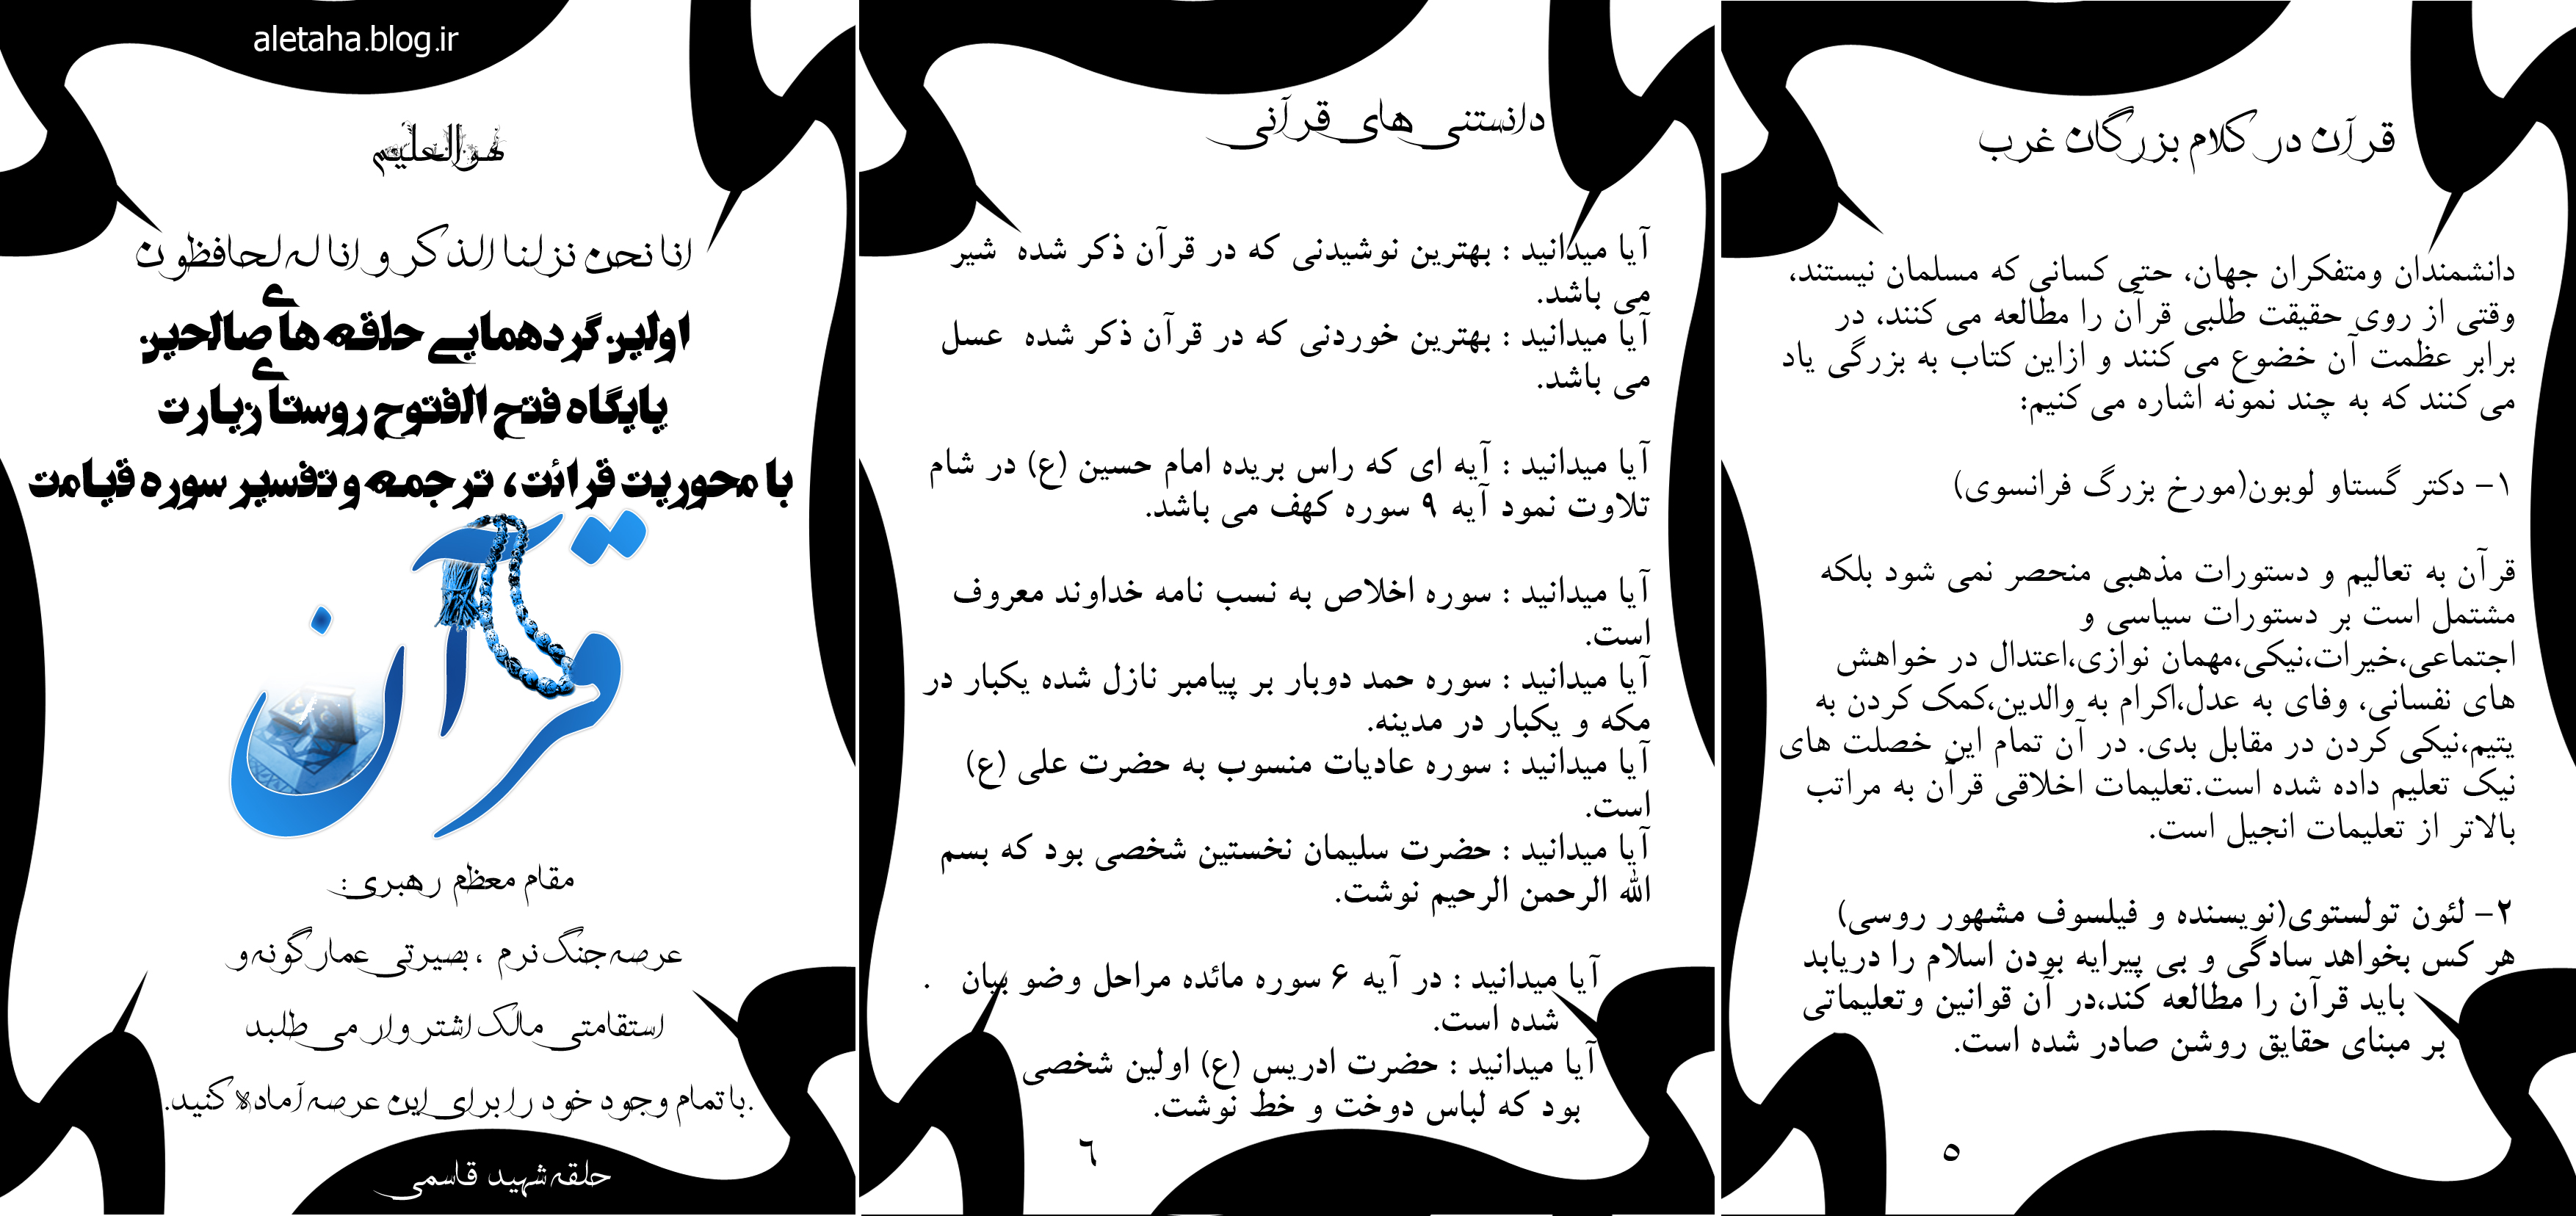 قرآن در کلام بزرگان غرب
دانشمندان ومتفکران جهان، حتی کسانی که مسلمان نیستند،
وقتی از روی حقیقت طلبی قرآن را مطالعه می کنند، در
برابر عظمت آن خضوع می کنند و ازاین کتاب به بزرگی یاد
می کنند که به چند نمونه اشاره می کنیم:
۱- دکتر گستاو لوبون(مورخ بزرگ فرانسوی)
قرآن به تعالیم و دستورات مذهبی منحصر نمی شود بلکه
مشتمل است بر دستورات سیاسی و
اجتماعی،خیرات،نیکی،مهمان نوازی،اعتدال در خواهش
های نفسانی، وفای به عدل،اکرام به والدین،کمک کردن به
یتیم،نیکی کردن در مقابل بدی. در آن تمام این خصلت های
نیک تعلیم داده شده است.تعلیمات اخلاقی قرآن به مراتب
بالاتر از تعلیمات انجیل است.
۲- لئون تولستوی(نویسنده و فیلسوف مشهور روسی)
هر کس بخواهد سادگی و بی پیرایه بودن اسلام را دریابد
باید قرآن را مطالعه کند،در آن قوانین وتعلیماتی
بر مبنای حقایق روشن صادر شده است.
۵
دانستنی های قرآنی
آیا میدانید : بهترین نوشیدنی که در قرآن ذکر شده شیر
می باشد.
آیا میدانید : بهترین خوردنی که در قرآن ذکر شده عسل
می باشد.
آیا میدانید : آیه ای که راس بریده امام حسین (ع) در شام
تلاوت نمود آیه ۹ سوره کهف می باشد.
آیا میدانید : سوره اخلاص به نسب نامه خداوند معروف
است.
آیا میدانید : سوره حمد دوبار بر پیامبر نازل شده یکبار در
مکه و یکبار در مدینه.
آیا میدانید : سوره عادیات منسوب به حضرت علی (ع)
است.
آیا میدانید : حضرت سلیمان نخستین شخصی بود که بسم
الله الرحمن الرحیم نوشت.
آیا میدانید : در آیه ۶ سوره مائده مراحل وضو بیان .
شده است.
آیا میدانید : حضرت ادریس (ع) اولین شخصی
بود که لباس دوخت و خط نوشت.
٦
aletaha.blog.ir
هوالعلیم
انا نحن نزلنا الذکر و انا له لحافظون
اولین گردهمایی حلقه های صالحین
پایگاه فتح الفتوح روستای زیارت
با محوریت قرائت، ترجمه و تفسیر سوره قیامت
قرآن
مقام معظم رهبری:
عرصه جنگ نرم ، بصیرتی عمارگونه و
استقامتی مالک اشتر وار می طلبد
.با تمام وجود خود را برای این عرصه آماده کنید.
حلقه شهید قاسمی